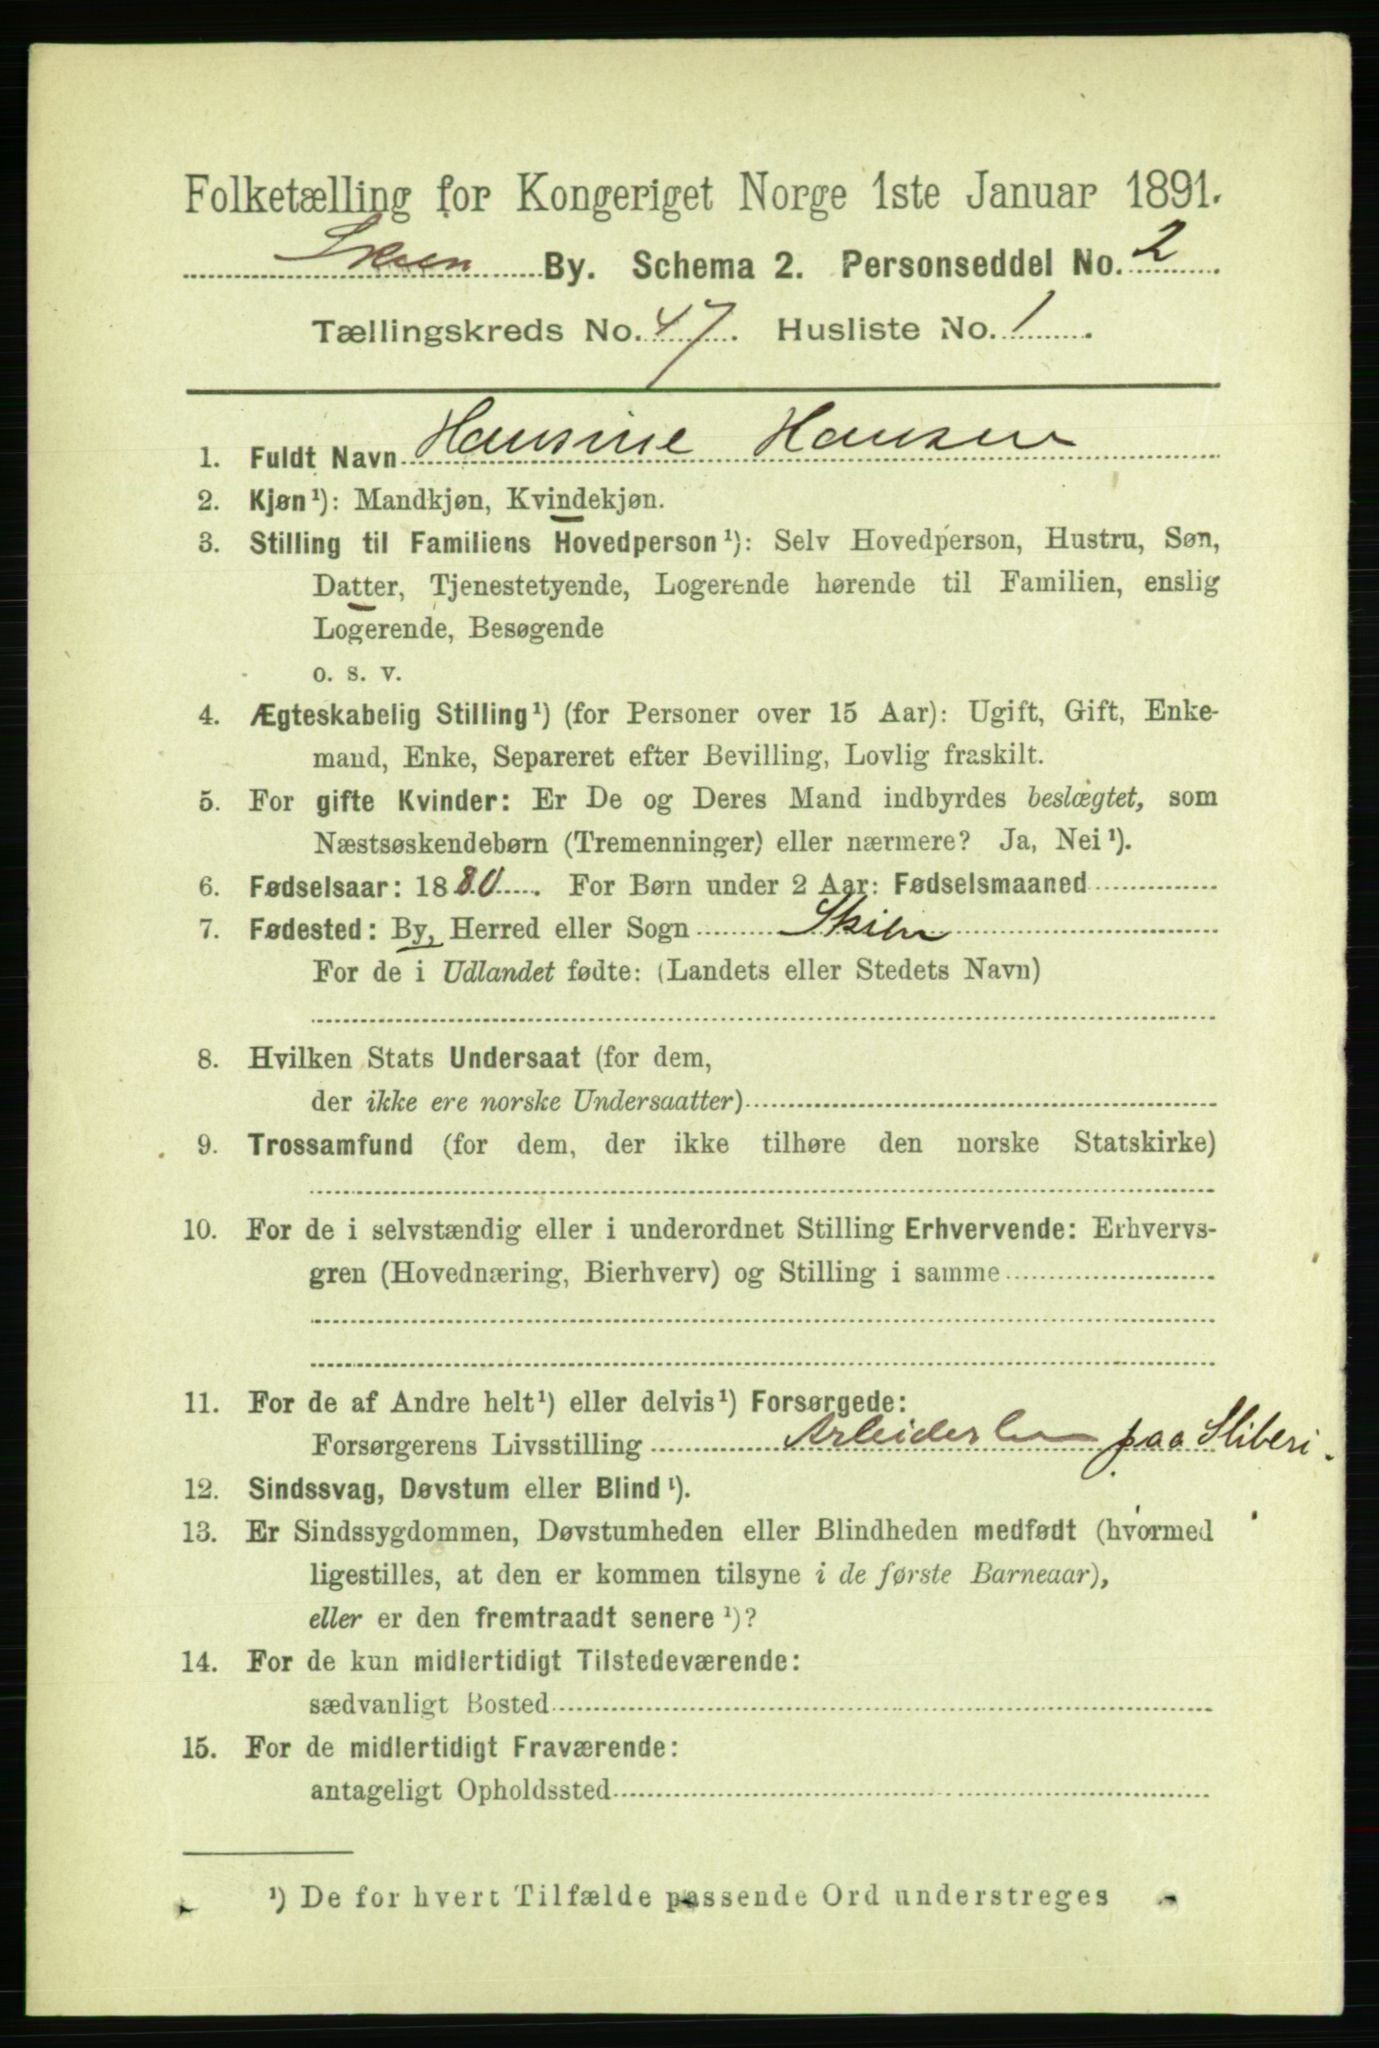 Folketælling for Kongeriget Norge 1ste Januar 1891.
Skien By. Schema 2. Personseddel No. 2
Tællingskreds No. 47. Husliste No. 1
1. Fuldt Navn Hansine Hansen
2. Kjøn¹): Mandkjøn, Kvindekjøn.
3. Stilling til Familiens Hovedperson¹): Selv Hovedperson, Hustru, Søn,
Datter, Tjenestetyende, Logerende hørende til Familien, enslig
Logerende, Besøgende
o. s. v.
4. Ægteskabelig Stilling¹) (for Personer over 15 Aar): Ugift, Gift, Enke-
mand, Enke, Separeret efter Bevilling, Lovlig fraskilt.
5. For gifte Kvinder: Er De og Deres Mand indbyrdes beslægtet, som
Næstsøskendebørn (Tremenninger) eller nærmere? Ja, Nei¹).
6. Fødselsaar: 1880. For Børn under 2 Aar: Fødselsmaaned
7. Fødested: By, Herred eller Sogn Skien
For de i Udlandet fødte: (Landets eller Stedets Navn)
8. Hvilken Stats Undersaat (for dem,
der ikke ere norske Undersaatter)
9. Trossamfund (for dem, der ikke tilhøre den norske Statskirke)
10. For de i selvstændig eller i underordnet Stilling Erhvervende: Erhvervs-
gren (Hovednæring, Bierhverv) og Stilling i samme
11. For de af Andre helt¹) eller delvis¹) Forsørgede:
Forsørgerens Livsstilling paa Sliberi.
12. Sindssvag, Døvstum eller Blind¹).
13. Er Sindssygdommen, Døvstumheden eller Blindheden medfødt (hvormed
ligestilles, at den er kommen tilsyne i de første Barneaar),
eller er den fremtraadt senere¹)?
14. For de kun midlertidigt Tilstedeværende:
sædvanligt Bosted
15. For de midlertidigt Fraværende:
antageligt Opholdssted
¹) De for hvert Tilfælde passende Ord understreges